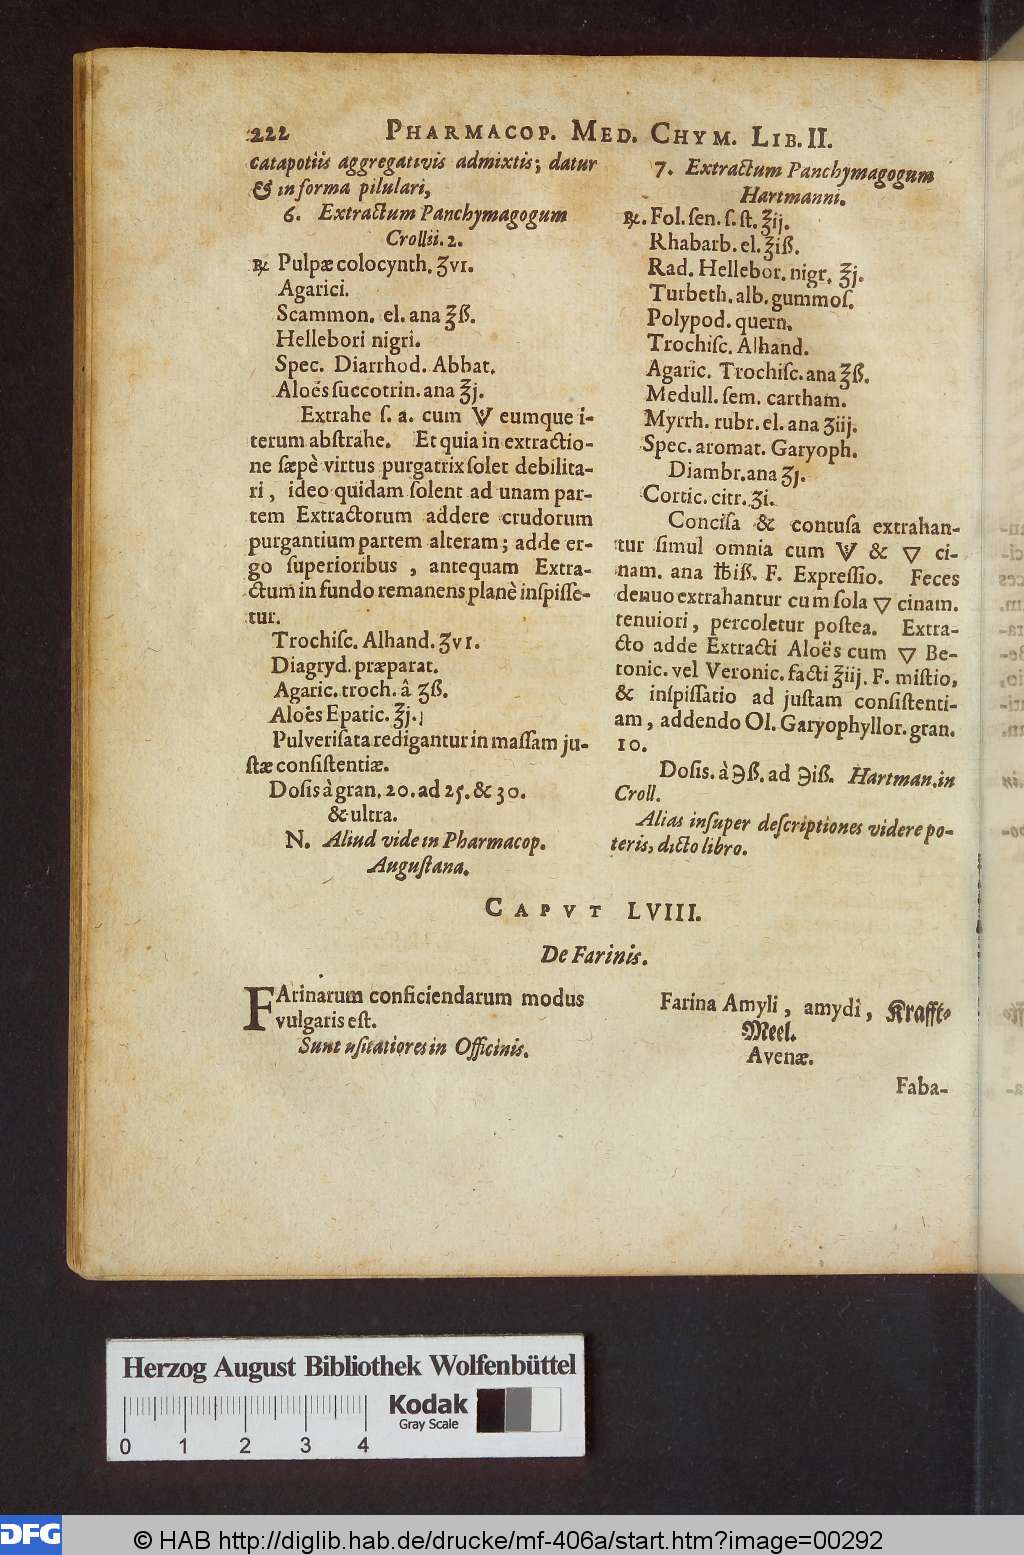 222 PHARMACOP. MED. CHYM. LIB. II.
catapotiis aggregativis admixtis; datur
& in forma pilulari,
6. Extractum Panchymagogum
Crollii. 2.
℞ Pulpæ colocynth. ʒvı.
Agarici.
Scammon. el. ana ℥ß.
Hellebori nigri.
Spec. Diarrhod. Abbat.
Aloés succotrin. ana ℥j.
Extrahe ſ. a. cum 🜈 eumque i-
terum abſtrahe. Et quia in extractio-
ne ſæpè virtus purgatrix ſolet debilita-
ri, ideo quidam ſolent ad unam par-
tem Extractorum addere crudorum
purgantium partem alteram; adde er-
go ſuperioribus, antequam Extra-
ctum in fundo remanens planè inſpiſſe-
tur.
Trochiſc. Alhand. ʒvı.
Diagryd. præparat.
Agaric. troch. â ʒß.
Aloës Epatic. ℥j.
Pulveriſata redigantur in maſſam ju-
ſtæ conſiſtentiæ.
Doſis à gran. 20. ad 25. & 30.
& ultra.
N. Aliud vide in Pharmacop.
Auguſtana.
7. Extractum Panchymagogum
Hartmanni.
℞. Fol. ſen. ſ. ſt. ℥ij.
Rhabarb. el. ℥iß.
Rad. Hellebor. nigr. ℥j.
Turbeth. alb. gummoſ.
Polypod. quern.
Trochiſc. Alhand.
Agaric. Trochiſc. ana ℥ß.
Medull. ſem. cartham.
Myrrh. rubr. el. ana ʒiij.
Spec. aromat. Garyoph.
Diambr. ana ʒj.
Cortic. citr. ʒi.
Conciſa & contuſa extrahan-
tur ſimul omnia cum 🜈 & 🜄 ci-
nam. ana ℔iß. F. Expreſſio. Feces
denuo extrahantur cum ſola 🜄 cinam.
tenuiori, percoletur poſtea. Extra-
cto adde Extracti Aloës cum 🜄 Be-
tonic. vel Veronic. facti ℥iij. F. miſtio,
& inſpiſſatio ad juſtam conſiſtenti-
am, addendo Ol. Garyophyllor. gran.
10.
Doſis. à ℈ß. ad ℈iß. Hartman. in
Croll.
Alias inſuper deſcriptiones videre po-
teris, dicto libro.
CAPVT LVIII.
De Farinis.
FArinarum conficiendarum modus
vulgaris eſt.
Sunt uſitatiores in Officinis.
Farina Amyli, amydi, Krafft-
Meel.
Avenæ.
Faba-
Herzog August Bibliothek Wolfenbüttel
Kodak
Gray Scale
0 1 2 3 4
DFG © HAB http://diglib.hab.de/drucke/mf-406a/start.htm?image=00292